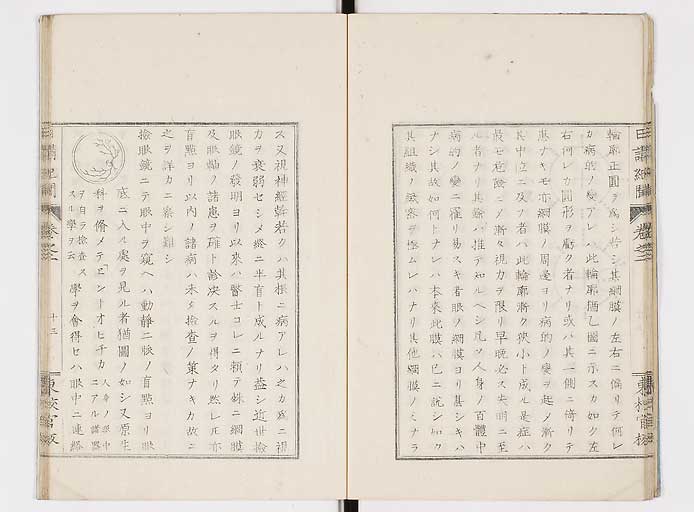 輪廓正圓ヲ為シ若シ其網膜ノ左右ニ偏リテ何レ
カ病的ノ變アレハ此輪廓猶乙圖ニ示スカ如ク左
右何レカ圓形ヲ虧ク者ナリ或ハ其一側ニ倚リテ
患ナキモ亦網膜ノ周邊ヨリ病的ノ變ヲ起メ漸ク
其中立ニ及フ者ハ此輪廓漸ク狹小ト成ル是症ハ
最モ危險ニメ漸々視力ヲ限リ早晩必ス失明ニ至
ル者ナリ其餘ハ推テ知ルヘシ凡ソ人身ノ百體中
病的ノ變ニ罹リ易スキ者眼ノ網膜ヨリ甚シキハ
ナシ其故如何トナレハ本來此膜ハ已ニ説シ如ク
其組織ノ緻密ヲ極ムレハナリ其他網膜ノミナラ
ス又視神經幹若クハ其根ニ病アレハ之カ為ニ視
力ヲ衰弱セシメ終ニ半盲ト成ルナリ蓋シ近世檢
眼鏡ノ發明ヨリ以來ハ醫士コレニ頼テ妹ニ網膜
及眼軸ノ諸患ヲ確ト診決スルヲ得タリ然レ圧亦
盲點ヨリ以内ノ諸病ハ未タ檢査ノ策ナキカ故ニ
之ヲ詳カニ察シ難シ
檢眼鏡ニテ眼中ヲ窺ヘハ動靜二脈ノ盲點ヨリ眼
底ニ入ル處ヲ見ル者猶圖ノ如シ又原生
科ヲ脩メテエントオヒチカ
ヲ自ラ檢査ス
ル學ヲ云
學ヲ會得セハ眼中ニ連絡
十三